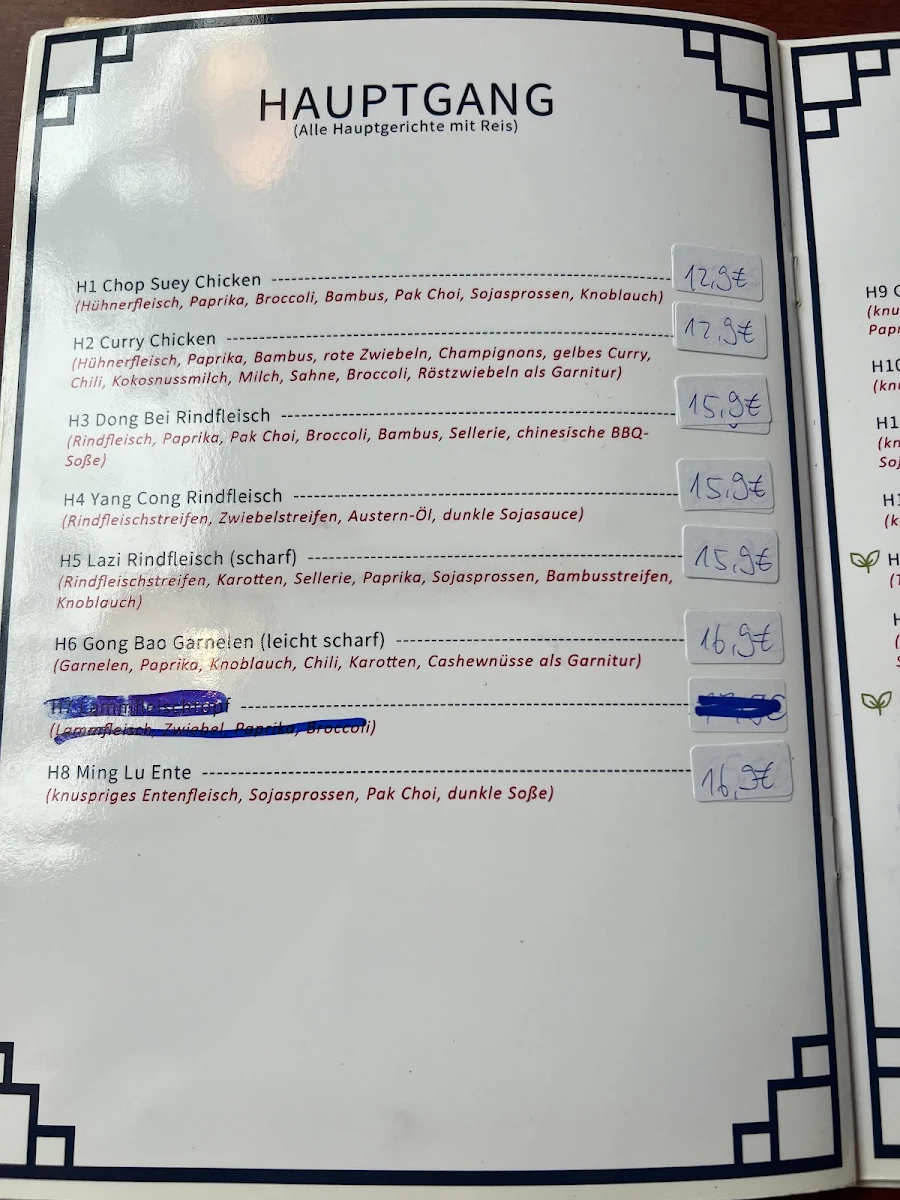 HAUPTGANG
(Alle Hauptgerichte mit Reis)
H1 Chop Suey Chicken 12,9€
(Hühnerfleisch, Paprika, Broccoli, Bambus, Pak Choi, Sojasprossen, Knoblauch)
H2 Curry Chicken 12,9€
(Hühnerfleisch, Paprika, Bambus, rote Zwiebeln, Champignons, gelbes Curry,
Chili, Kokosnussmilch, Milch, Sahne, Broccoli, Röstzwiebeln als Garnitur)
H3 Dong Bei Rindfleisch 15,9€
(Rindfleisch, Paprika, Pak Choi, Broccoli, Bambus, Sellerie, chinesische BBQ-
Soße)
H4 Yang Cong Rindfleisch 15,9€
(Rindfleischstreifen, Zwiebelstreifen, Austern-Öl, dunkle Sojasauce)
H5 Lazi Rindfleisch (scharf) 15,9€
(Rindfleischstreifen, Karotten, Sellerie, Paprika, Sojasprossen, Bambusstreifen,
Knoblauch)
H6 Gong Bao Garnelen (leicht scharf) 16,9€
(Garnelen, Paprika, Knoblauch, Chili, Karotten, Cashewnüsse als Garnitur)
H7 Lammfleischtopf
(Lammfleisch, Zwiebel, Paprika, Broccoli)
H8 Ming Lu Ente 16,9€
(knuspriges Entenfleisch, Sojasprossen, Pak Choi, dunkle Soße)
H9
H10